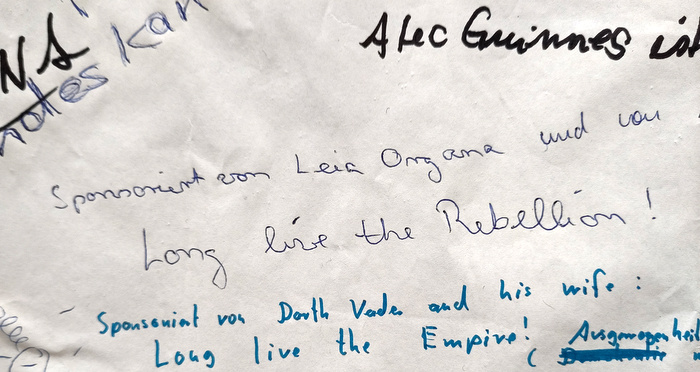 Alec Guinnes ist
NS
Sponsoriert von Leia Organa und von
Long live the Rebellion!
Sponsoriat von Darth Vader and his wife:
Long live the Empire! (Ausgewogenheit